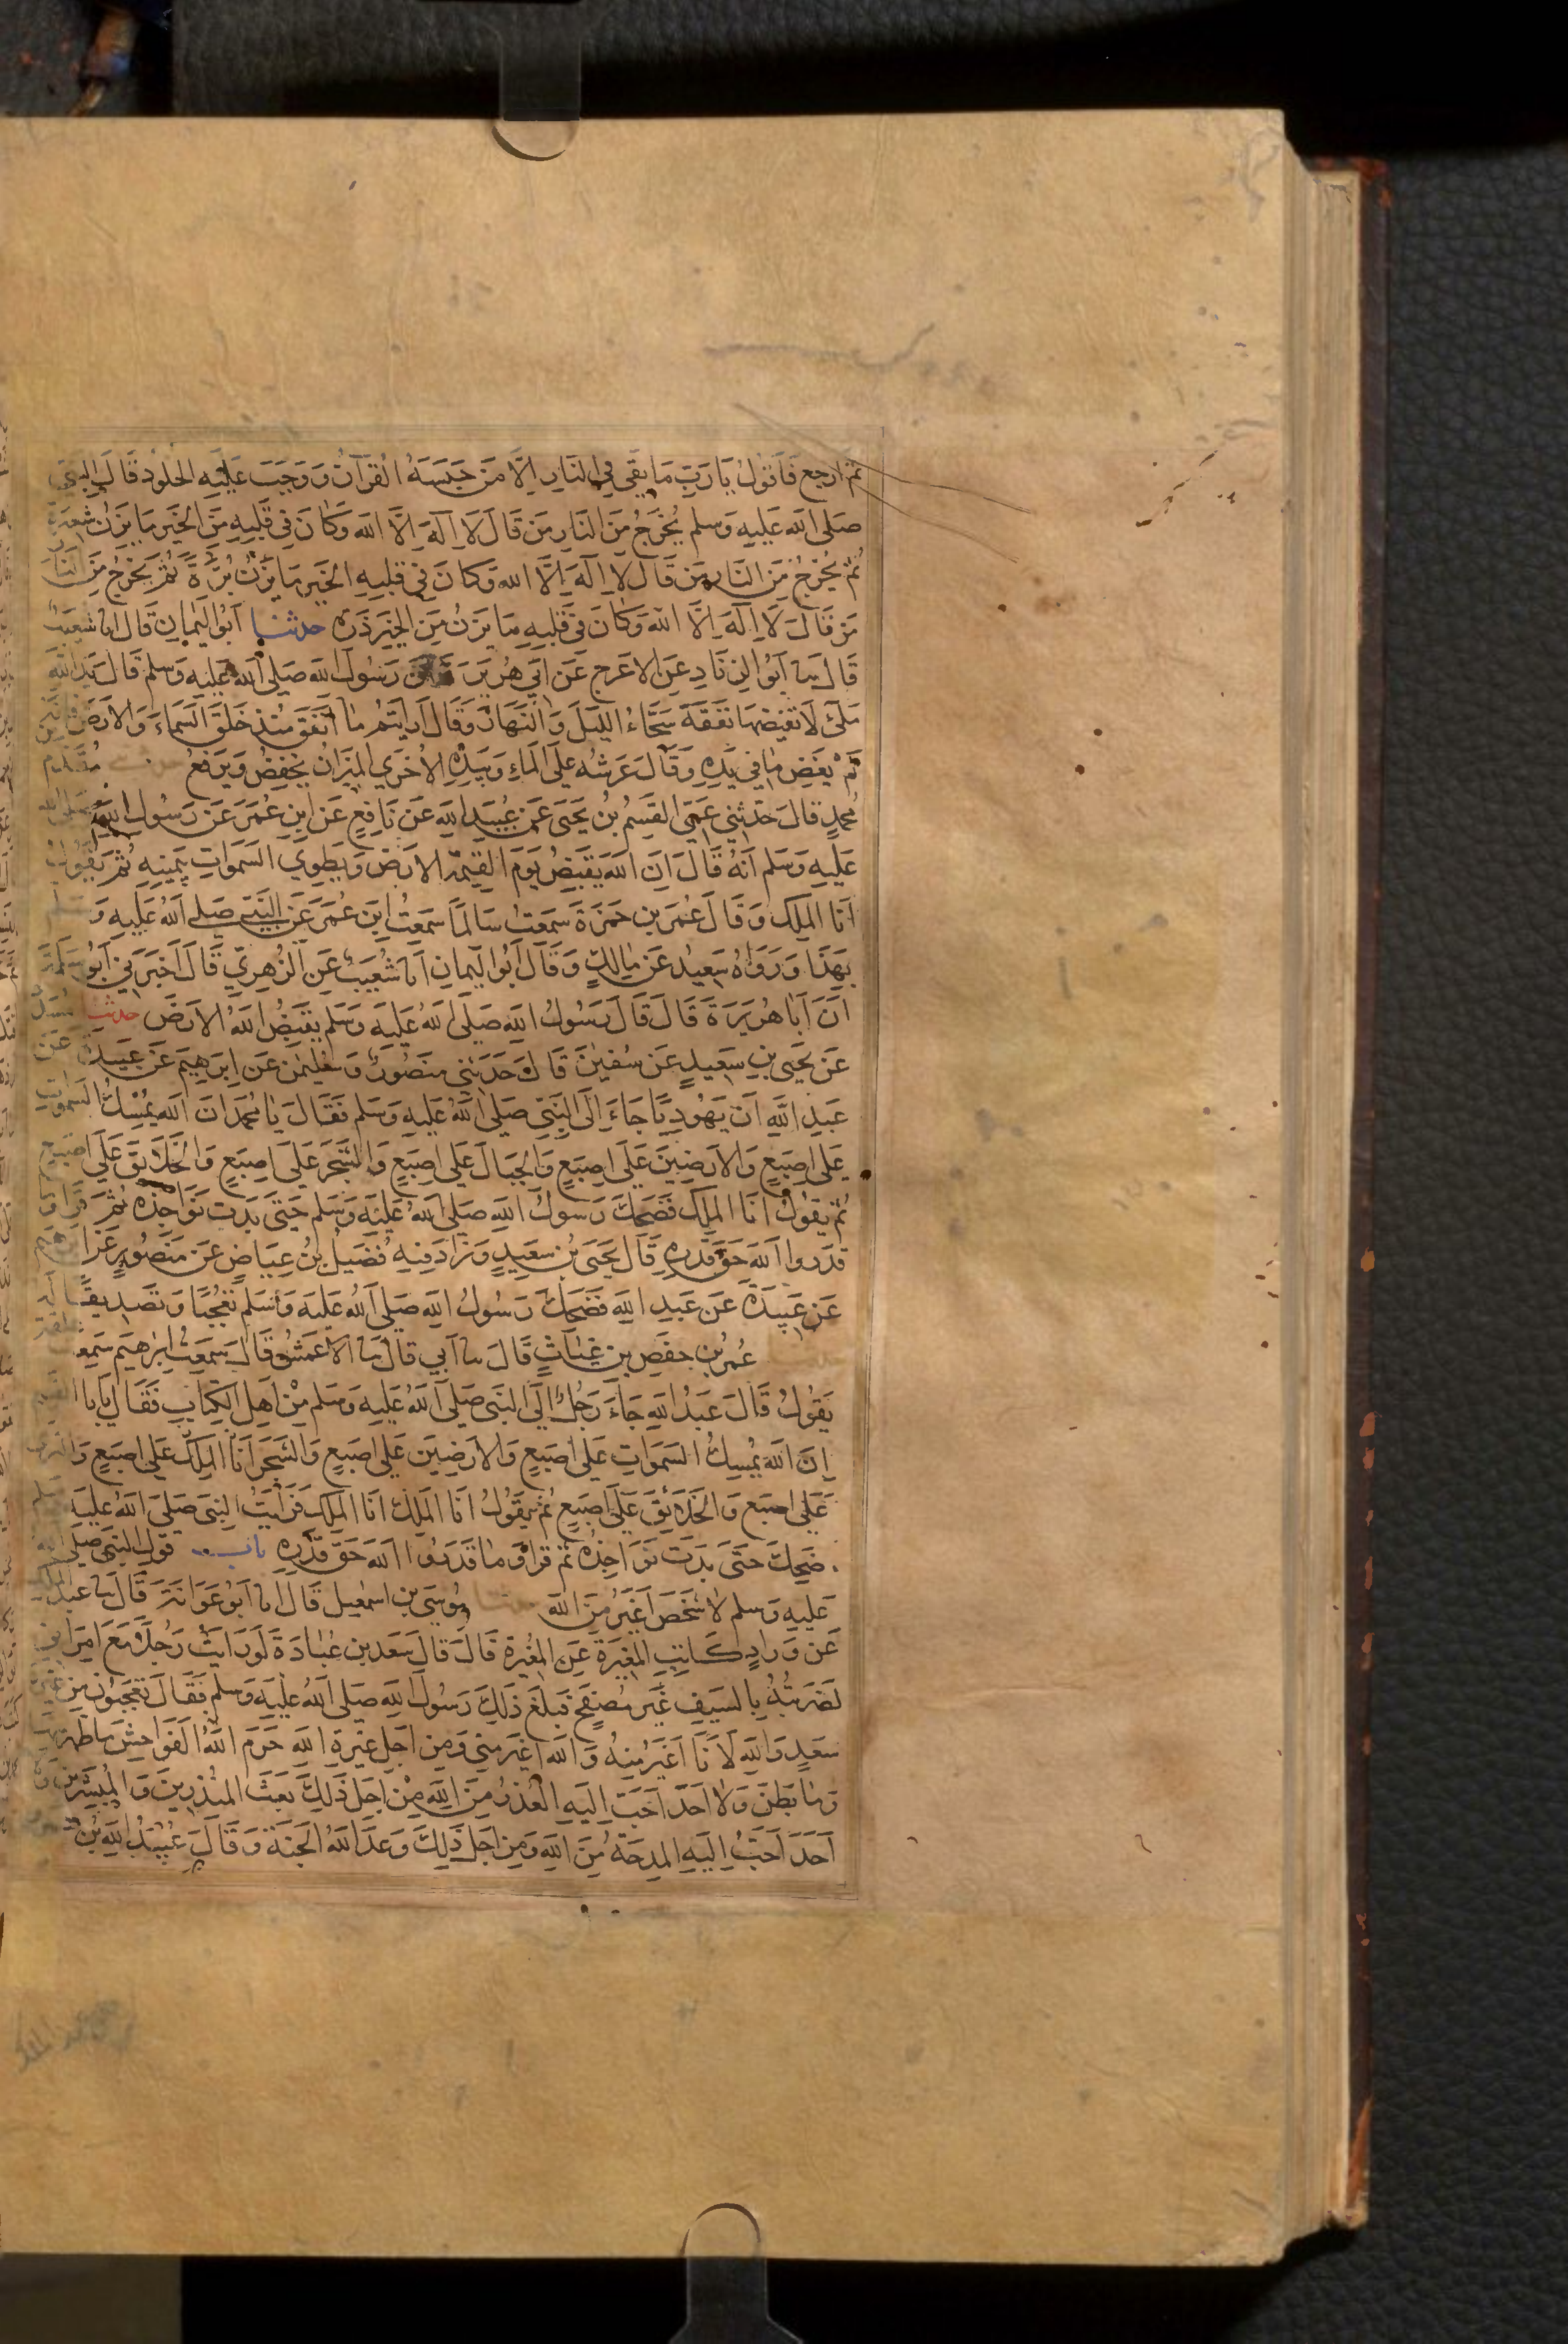 ثم ارجع فاقول يا رب ما بقي في النار الا من حبسه القرآن ووجب عليه الخلود قال النبي
صلى الله عليه وسلم يخرج من النار من قال لا اله الا الله وكان في قلبه من الخير ما يزن شعيرة
ثم يخرج من النار من قال لا اله الا الله وكان في قلبه الخير ما يزن برة ثم يخرج من النار
من قال لا اله الا الله وكان في قلبه ما يزن من الخير ذرة حدثنا ابو اليمان قال انا شعيب
قال سا ابو الزناد عن الاعرج عن ابي هريرة عن رسول الله صلى الله عليه وسلم قال يد الله
ملئ لا تغيضها نفقة سحاء الليل والنهار وقال ارايتم ما انفق منذ خلق السماء والارض فانه
لم يغض ما في يده وقال عرشه على الماء وبيده الاخري الميزان يخفض ويرفع مقدم
محمد قال حدثني عمي القسم بن يحيى عن عبيد الله عن نافع عن ابن عمر عن رسول الله صلى الله
عليه وسلم انه قال ان الله يقبض يوم القيمة الارض ويطوي السموات بيمينه ثم يقول
انا الملك وقال عمر بن حمزة سمعت سالما سمعت ابن عمر عن النبي صلى الله عليه وسلم
بهذا ورواه سعيد عن مالك وقال ابو اليمان انا شعيب عن الزهري قال اخبرني ابو سلمة
ان ابا هريرة قال قال رسول الله صلى الله عليه وسلم يقبض الله الارض حدثنا مسدد
عن يحيى بن سعيد عن سفين قال وحدثني منصور وسليمن عن ابرهيم عن عبيدة عن
عبد الله ان يهوديا جاء الى النبي صلى الله عليه وسلم فقال يا محمد ان الله يمسك السموات
على اصبع والارضين على اصبع والجبال على اصبع والشجر على اصبع والخلائق على اصبع
ثم يقول انا الملك فضحك رسول الله صلى الله عليه وسلم حتى بدت نواجذه ثم قرا وما
قدروا الله حق قدره قال يحيى بن سعيد وزاد فيه فضيل بن عياض عن منصور عن ابرهيم
عن عبيدة عن عبد الله فضحك رسول الله صلى الله عليه وسلم تعجبا وتصديقا له
عمر بن حفص بن غياث قال سا ابي قال سا الاعمش قال سمعت ابرهيم سمعت علقمة
يقول قال عبد الله جاء رجل الى النبي صلى الله عليه وسلم من اهل الكتاب فقال يابا القسم
ان الله يمسك السموات على اصبع والارضين على اصبع والشجر انا الملك على اصبع والثرى
على اصبع والخلائق على اصبع ثم يقول انا الملك انا الملك فرايت النبي صلى الله عليه وسلم
ضحك حتى بدت نواجذه ثم قرا وما قدروا الله حق قدره باب قول النبي صلى الله
عليه وسلم لا شخص اغير من الله حدثنا موسى بن اسمعيل قال انا ابو عوانة قال سا عبد الملك
عن وراد كاتب المغيرة عن المغيرة قال قال سعد بن عبادة لو رايت رجلا مع امراتي
لضربته بالسيف غير مصفح فبلغ ذلك رسول الله صلى الله عليه وسلم فقال تعجبون من غيرة
سعد والله لانا اغير منه والله اغير مني ومن اجل غيرة الله حرم الله الفواحش ما ظهر منها
وما بطن ولا احد احب اليه العذر من الله من اجل ذلك بعث المنذرين والمبشرين ولا
احد احب اليه المدحة من الله ومن اجل ذلك وعد الله الجنة وقال عبيد الله بن